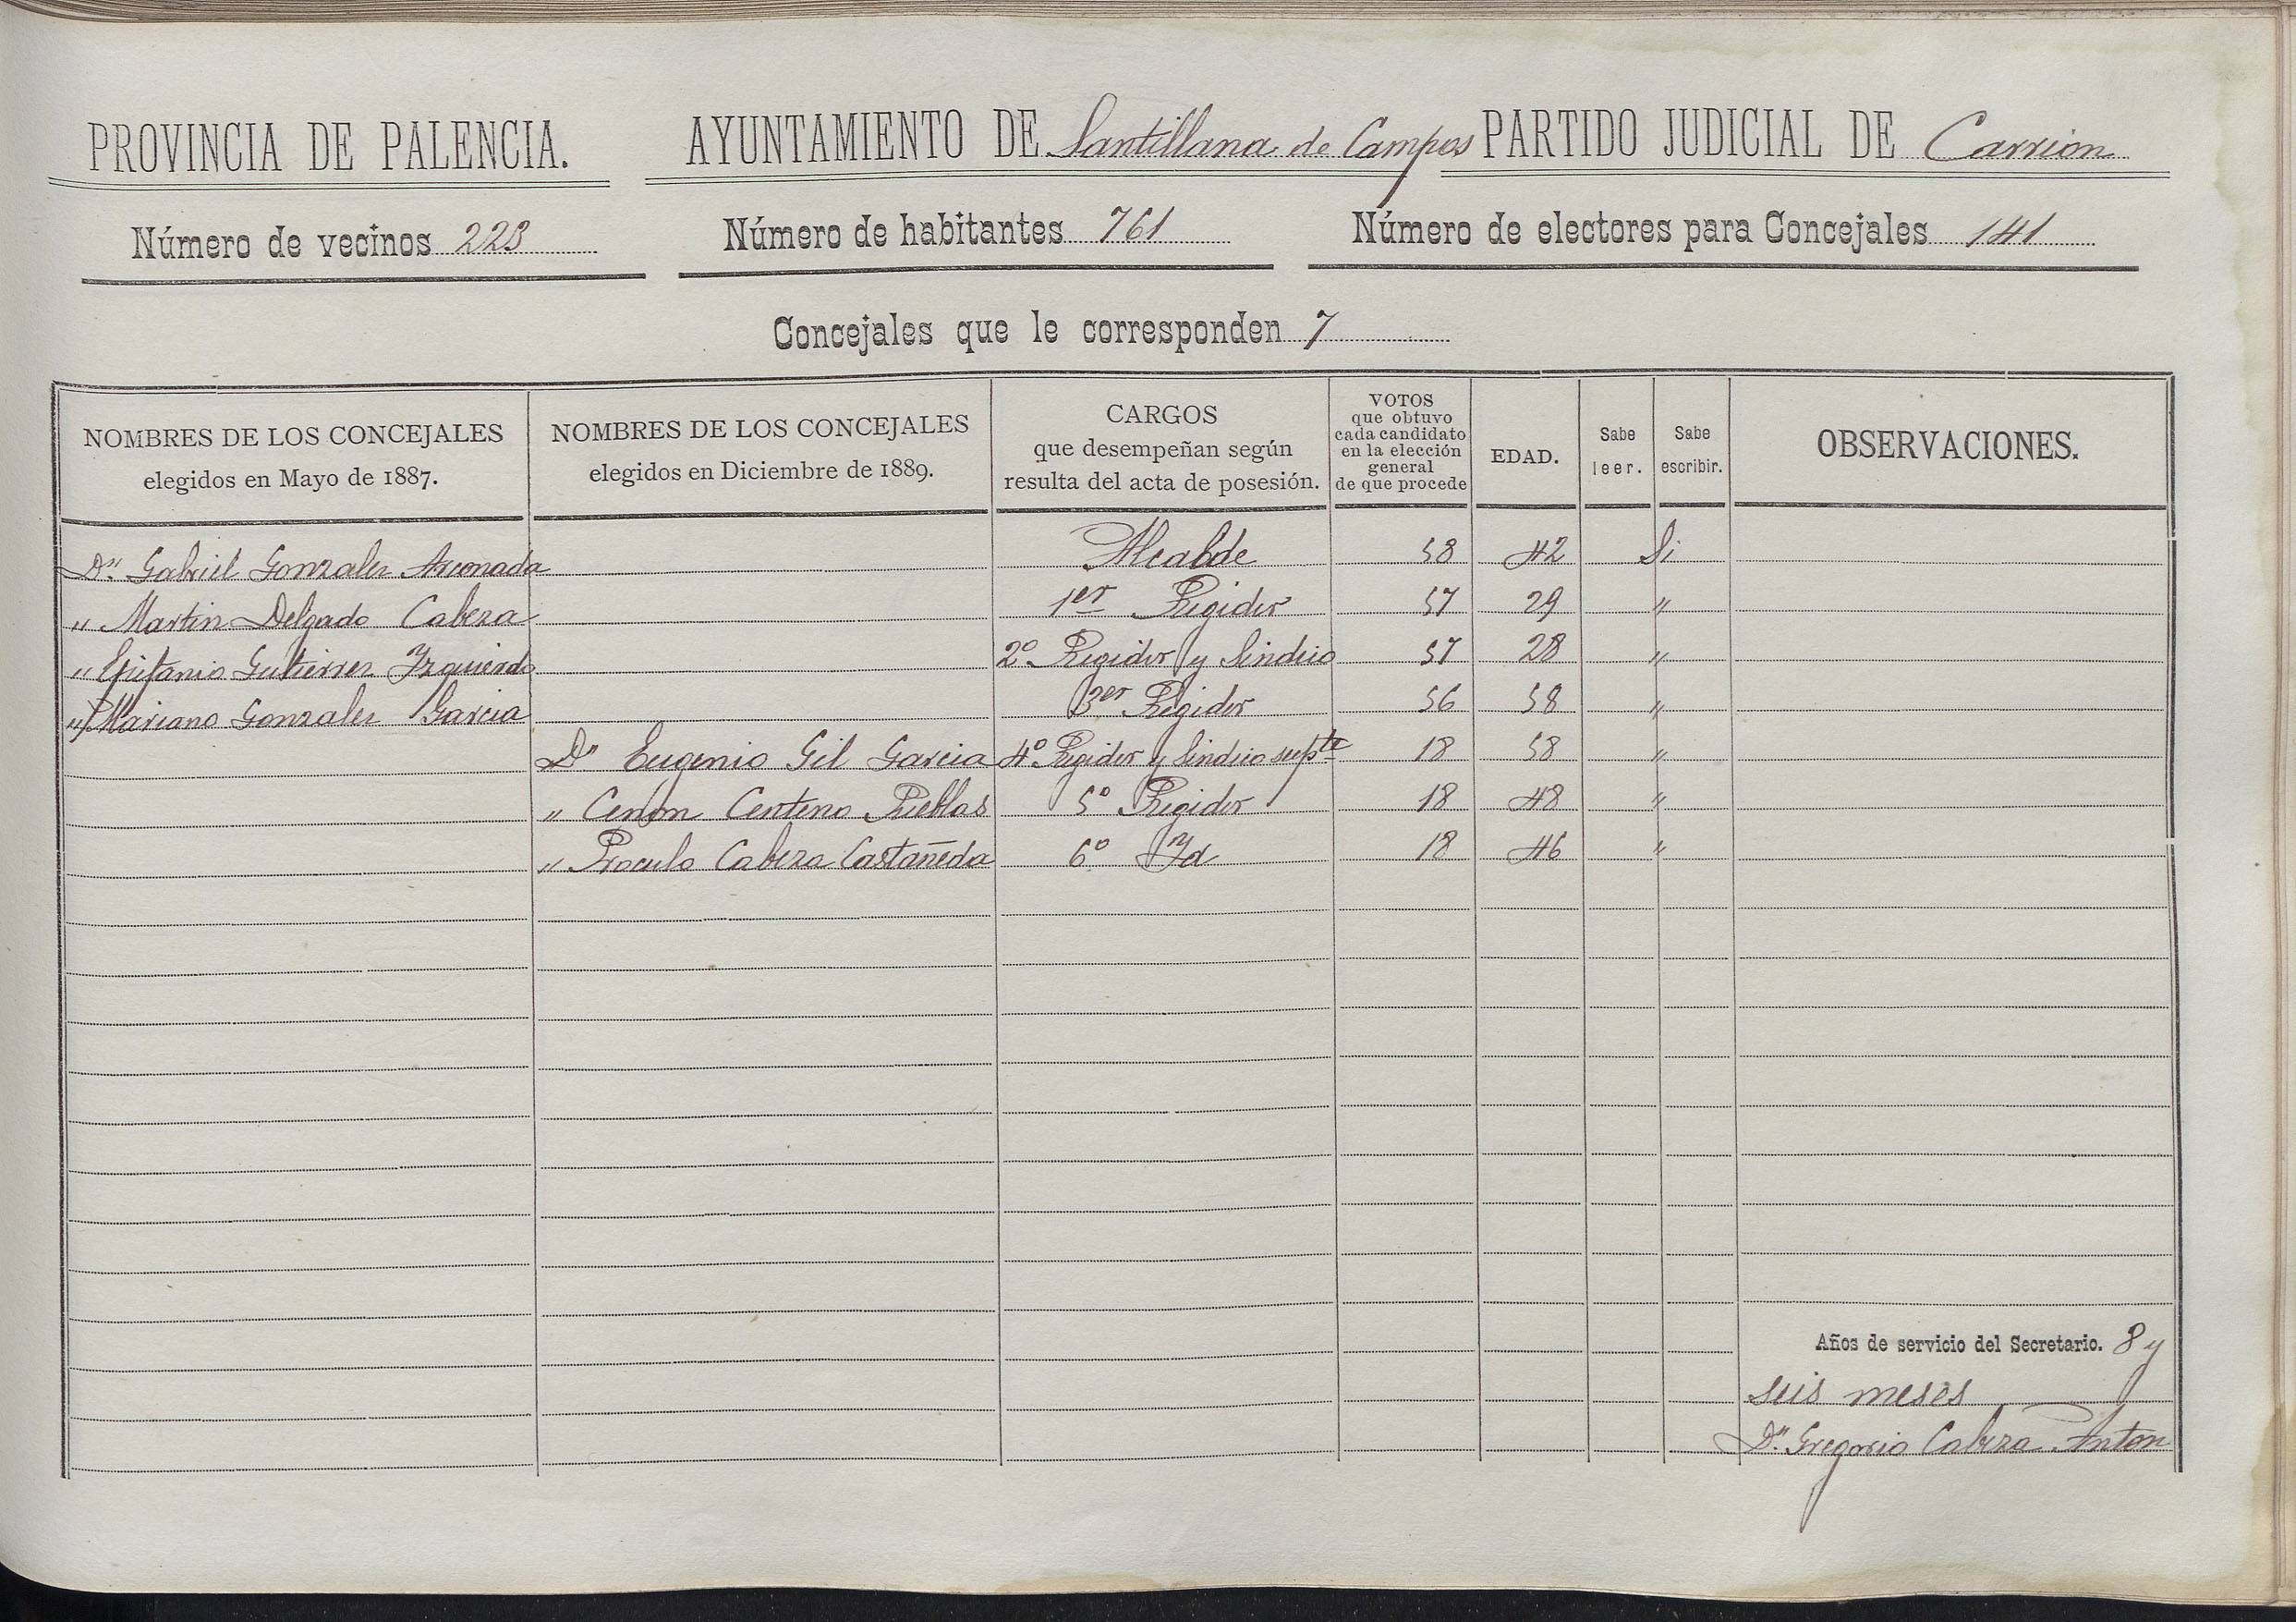 PROVINCIA DE PALENCIA. AYUNTAMIENTO DE Santillana de Campos PARTIDO JUDICIAL DE Carrion
Número de vecinos 223 Número de habitantes 761 Número de electores para Concejales 141
Concejales que le corresponden 7
NOMBRES DE LOS CONCEJALES elegidos en Mayo de 1887. NOMBRES DE LOS CONCEJALES elegidos en Diciembre de 1889. CARGOS que desempeñan según resulta del acta de posesión. VOTOS que obtuvo cada candidato en la elección general de que procede EDAD. Sabe leer. Sabe escribir. OBSERVACIONES.
Dn Gabriel Gonzalez Arconada Alcalde 58 42 Si
" Martin Delgado Cabeza 1er Regidor 57 29 "
" Epifanio Gutierrez Yzquierdo 2º Regidor y Sindico 57 28 "
" Mariano Gonzalez Garcia 3er Regidor 56 58 "
Dn Eugenio Gil Garcia 4º Regidor y Sindico supte 18 58 "
" Cenon Centeno Rueblas 5º Regidor 18 48 "
" Proculo Cabeza Castañeda 6º Yd 18 46 "
Años de servicio del Secretario. 8 y
seis meses
Dn Gregorio Cabeza Anton